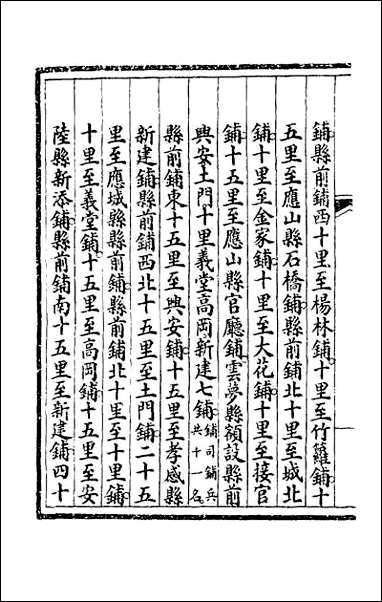 鋪縣前鋪西十里至楊林鋪十里至竹籮鋪十
五里至應山縣石橋鋪縣前鋪北十里至城北
鋪十里至金家鋪十里至大花鋪十里至接官
鋪十五里至應山縣官廳鋪雲夢縣額設縣前
興安土門十里義堂高岡新建七鋪鋪司鋪兵共十一名
縣前鋪東十五里至興安鋪十五里至孝感縣
新建鋪縣前鋪西北十五里至土門鋪二十五
里至應城縣縣前鋪縣前鋪北十里至十里鋪
十里至義堂鋪十五里至高岡鋪十五里至安
陸縣新添鋪縣前鋪南十五里至新建鋪四十